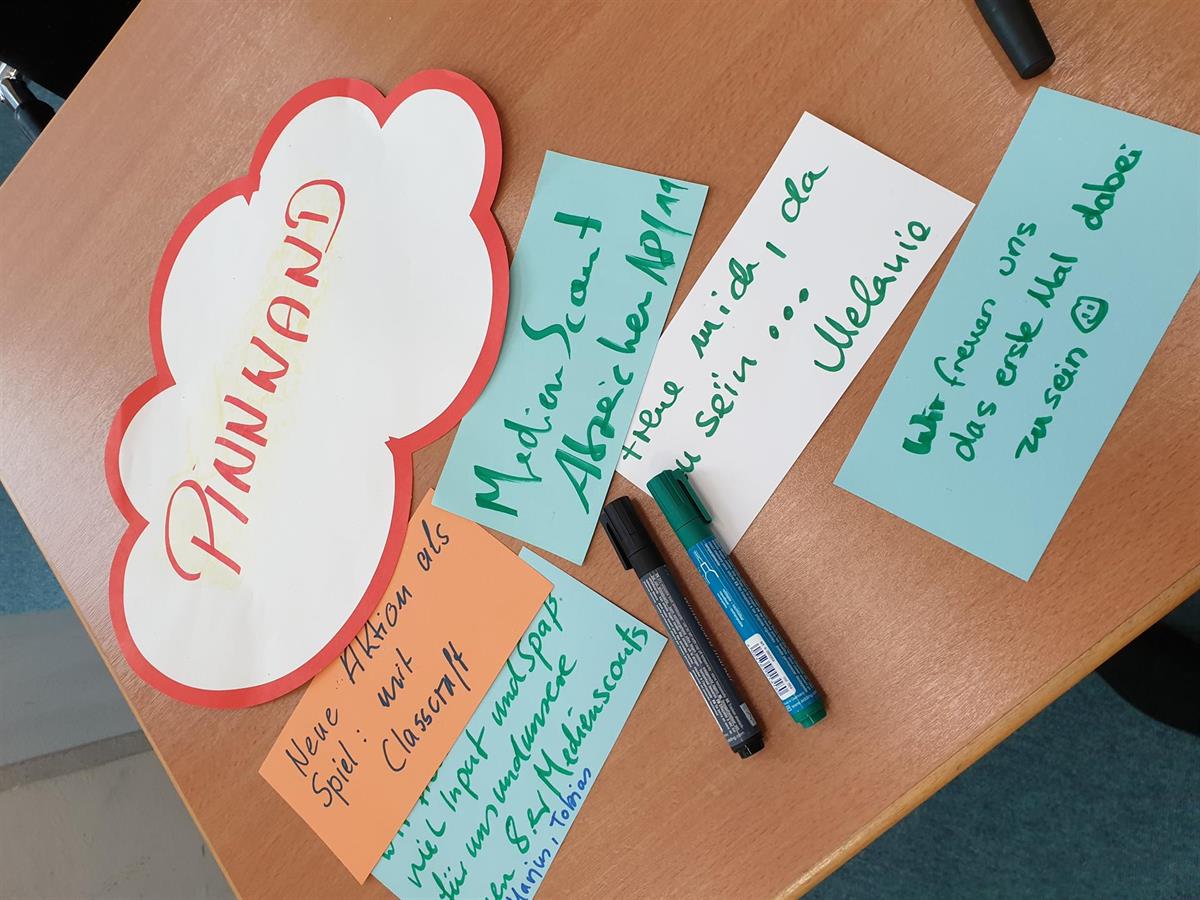 PINNWAND
Medien Scout
Abzeichen 18/19
freue mich, da
zu sein...
Melanie
Wir freuen uns
das erste Mal dabei
zu sein ☺
Neue Aktion als
Spiel: mit
Classcraft
viel Input und Spaß
für uns und unsere
8.er Medienscouts
Marius, Tobias